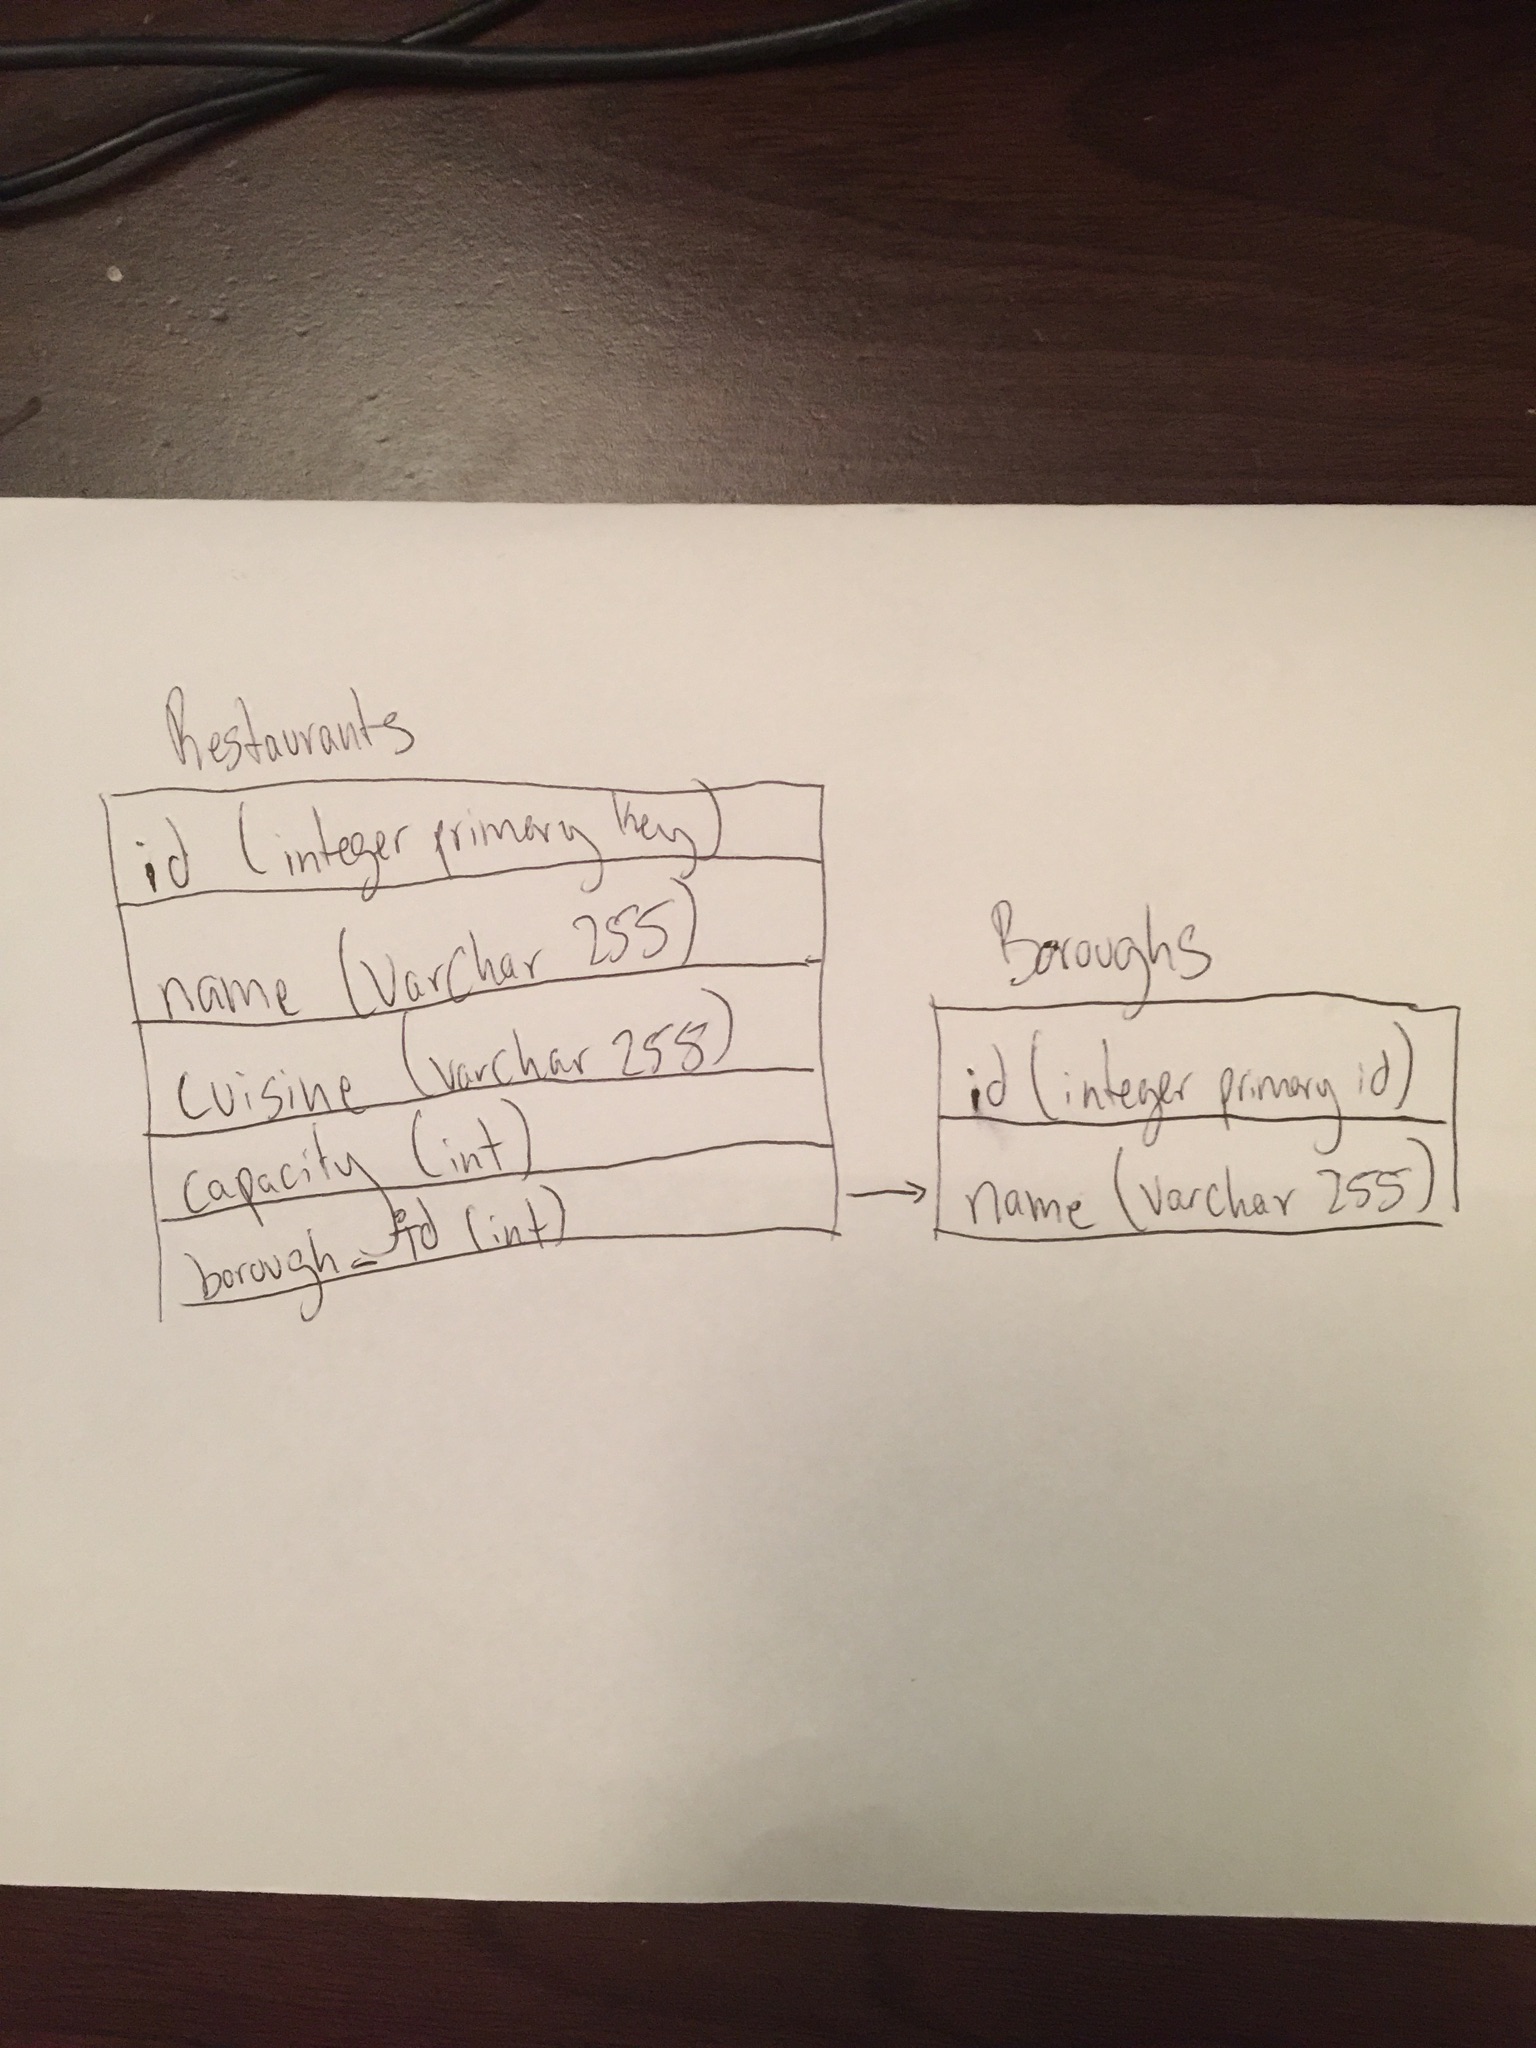 Restaurants
id (integer primary key)
name (Varchar 255)
cuisine (varchar 255)
capacity (int)
borough_id (int)
Boroughs
id (integer primary id)
name (varchar 255)